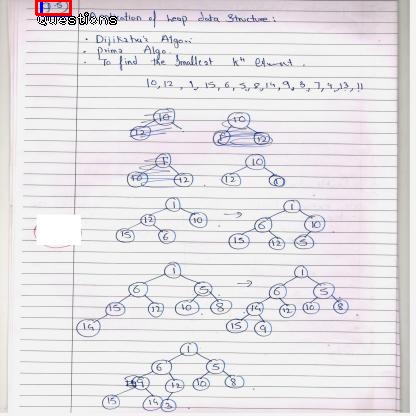 Questions
Application of heap data Structure:
Dijikatra's Algo:
prims Algo.
To find the Smallest kth element.
10, 12, 1, 15, 6, 5, 8, 14, 9, 3, 7, 4, 13, 11
10 10
12 12
1 10
10 12 12 1
1 1
12 10 6 10
15 6 15 12 5
1 1
6 5 6 5
15 12 10 8 14 12 10 8
14 15 9
1
6 5
9 12 10 8
15 14 3